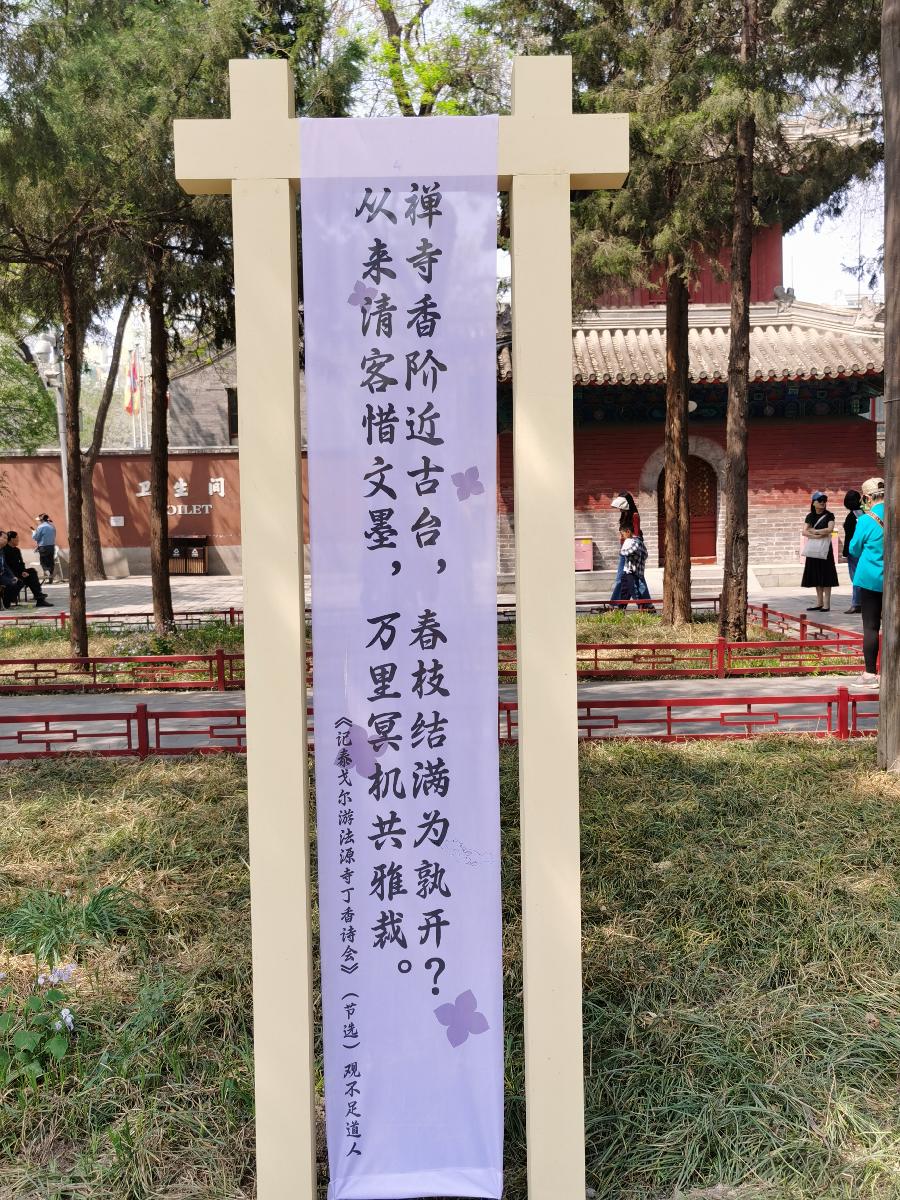 禅寺香阶近古台，春枝结满为孰开？
从来清客惜文墨，万里冥机共雅裁。
《记泰戈尔游法源寺丁香诗会》（节选）观不足道人
卫生间
TOILET